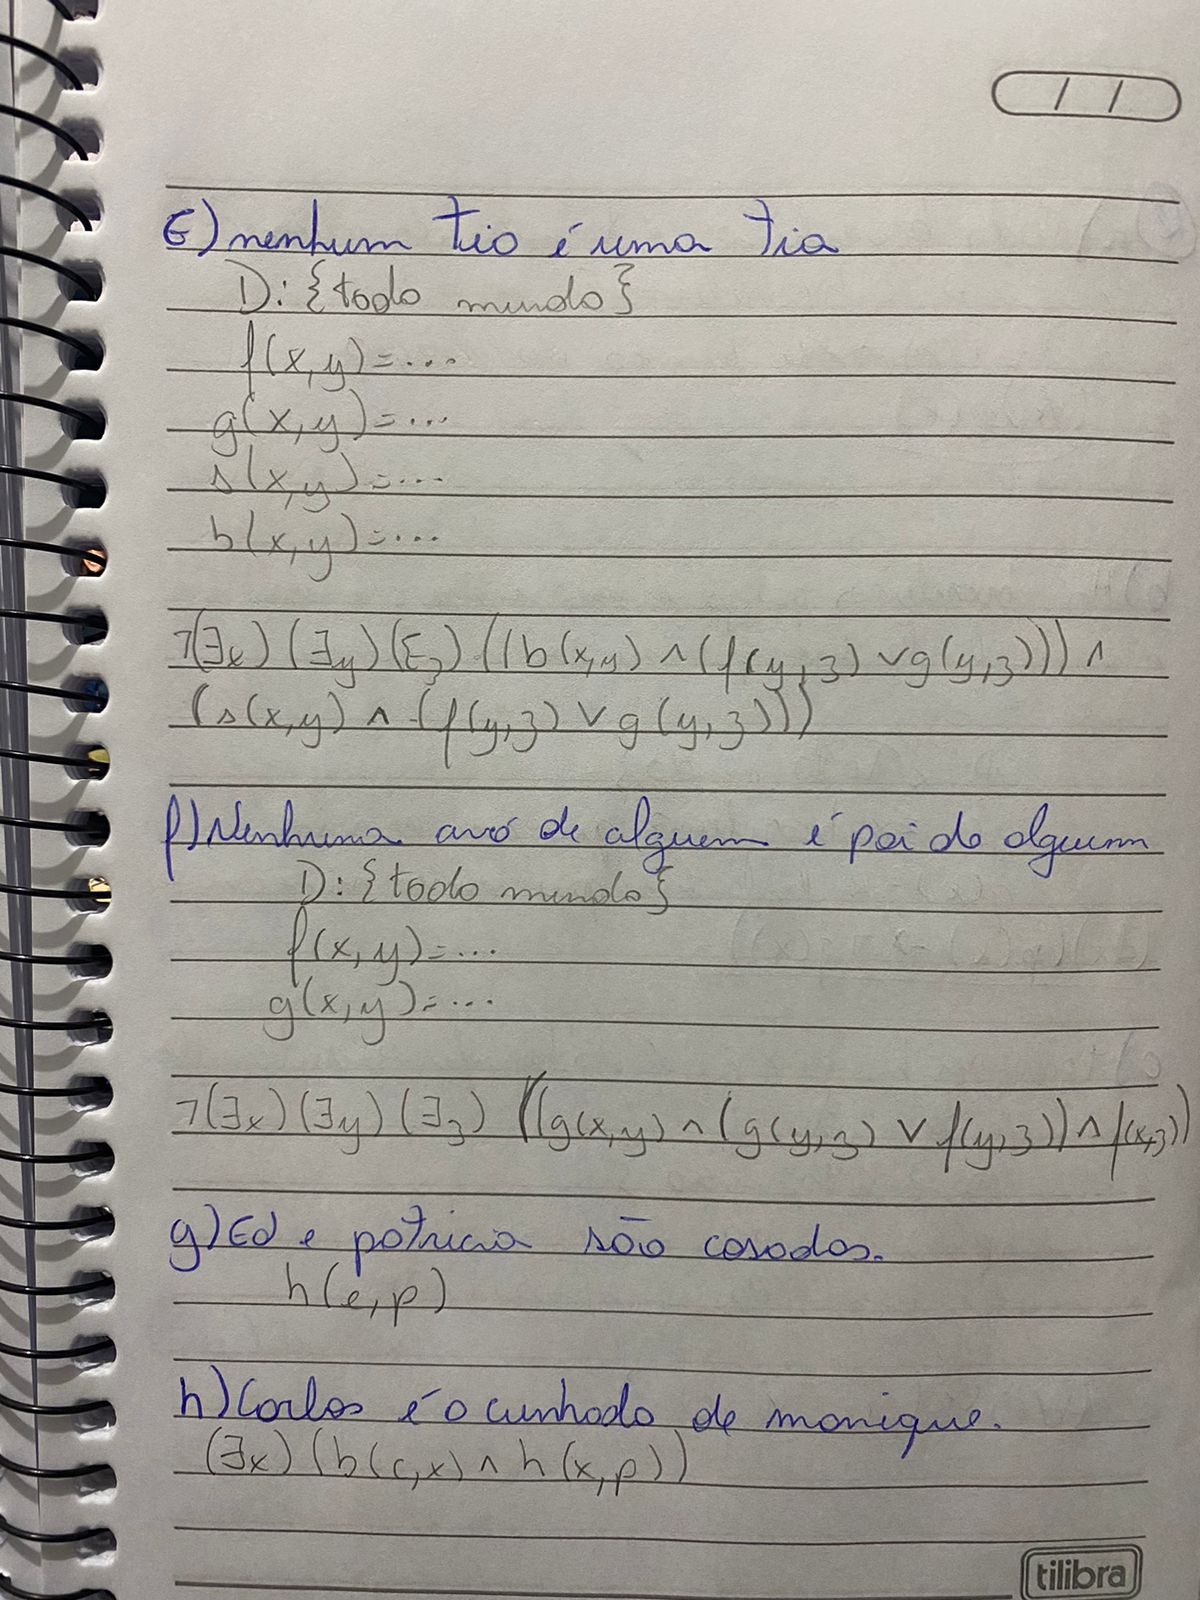 / /
E) nenhum tio é uma tia
D: {todo mundo}
f(x,y)=...
g(x,y)=...
s(x,y)=...
b(x,y)=...
¬(∃x)(∃y)(Ez)((b(x,y) ∧ (f(y,z) ∨ g(y,z))) ∧
(s(x,y) ∧ (f(y,z) ∨ g(y,z)))
f) Nenhuma avó de alguem é pai de alguem
D: {todo mundo}
f(x,y)=...
g(x,y)=...
¬(∃x)(∃y)(∃z)((g(x,y) ∧ (g(y,z) ∨ f(y,z)) ∧ f(x,z))
g) Ed e patricia são casados.
h(e,p)
h) Carlos é o cunhado de monique.
(∃x)(b(c,x) ∧ h(x,p))
tilibra